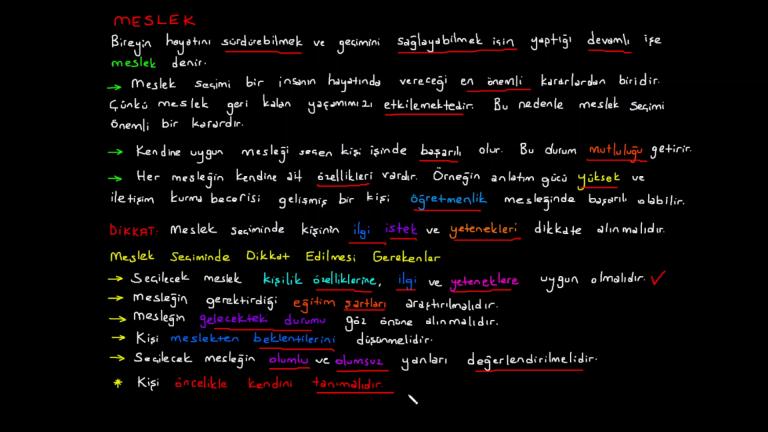 MESLEK
Bireyin hayatını sürdürebilmek ve geçimini sağlayabilmek için yaptığı devamlı işe
meslek denir.
→ Meslek seçimi bir insanın hayatında vereceği en önemli kararlardan biridir.
Çünkü meslek geri kalan yaşamımızı etkilemektedir. Bu nedenle meslek seçimi
önemli bir karardır.
→ Kendine uygun mesleği seçen kişi işinde başarılı olur. Bu durum mutluluğu getirir.
→ Her mesleğin kendine ait özellikleri vardır. Örneğin anlatım gücü yüksek ve
iletişim kurma becerisi gelişmiş bir kişi öğretmenlik mesleğinde başarılı olabilir.
DİKKAT: Meslek seçiminde kişinin ilgi istek ve yetenekleri dikkate alınmalıdır.
Meslek Seçiminde Dikkat Edilmesi Gerekenler
→ Seçilecek meslek kişilik özelliklerine, ilgi ve yeteneklere uygun olmalıdır. ✓
→ Mesleğin gerektirdiği eğitim şartları araştırılmalıdır.
→ Mesleğin gelecektek durumu göz önüne alınmalıdır.
→ Kişi meslekten beklentilerini düşünmelidir.
→ Seçilecek mesleğin olumlu ve olumsuz yanları değerlendirilmelidir.
* Kişi öncelikle kendini tanımalıdır.